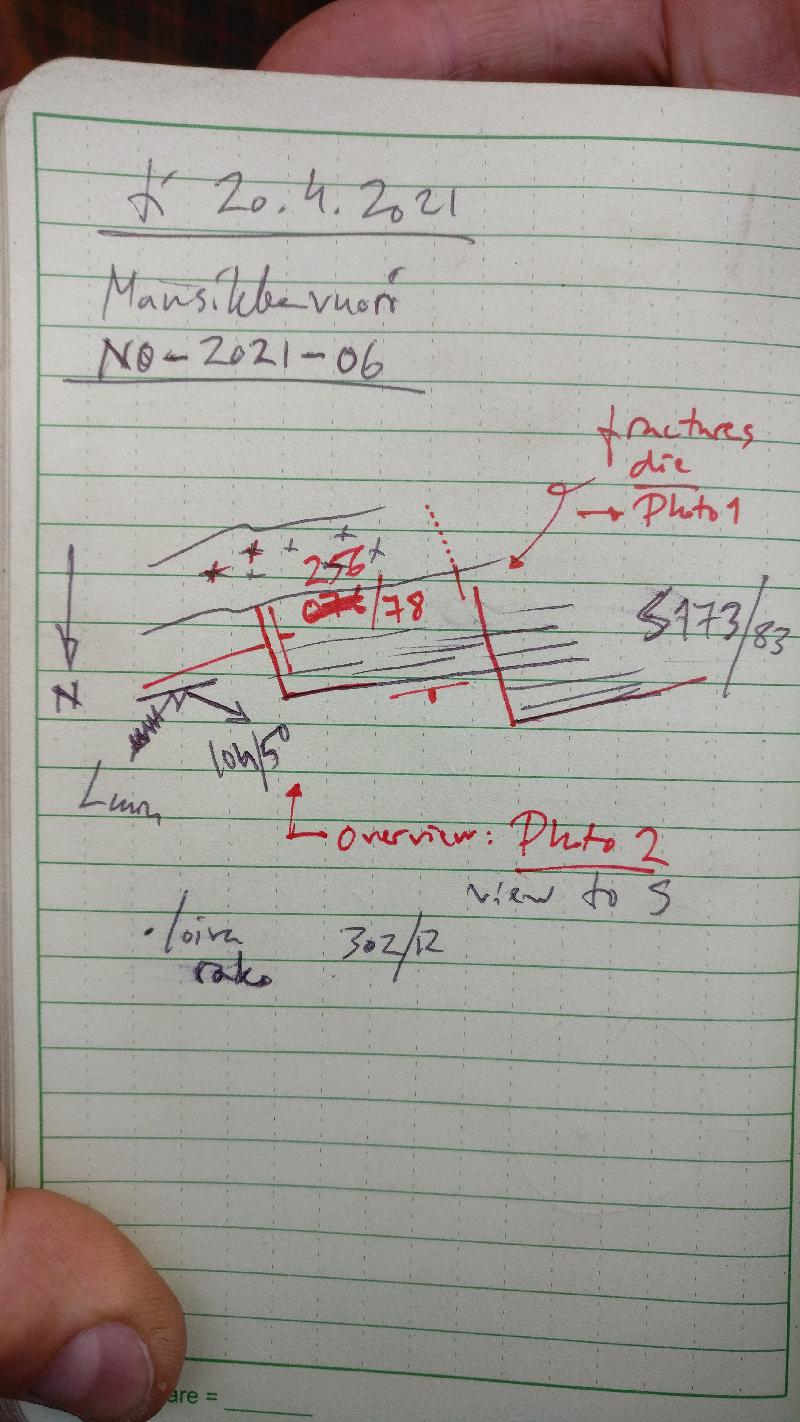 20.4.2021
Mansikkavuori
NO-2021-06
fractures
die
→ Photo 1
256
/78
S173/83
N
104/5°
Lmin
overview: Photo 2
view to S
• loiva 302/12
rako
are =